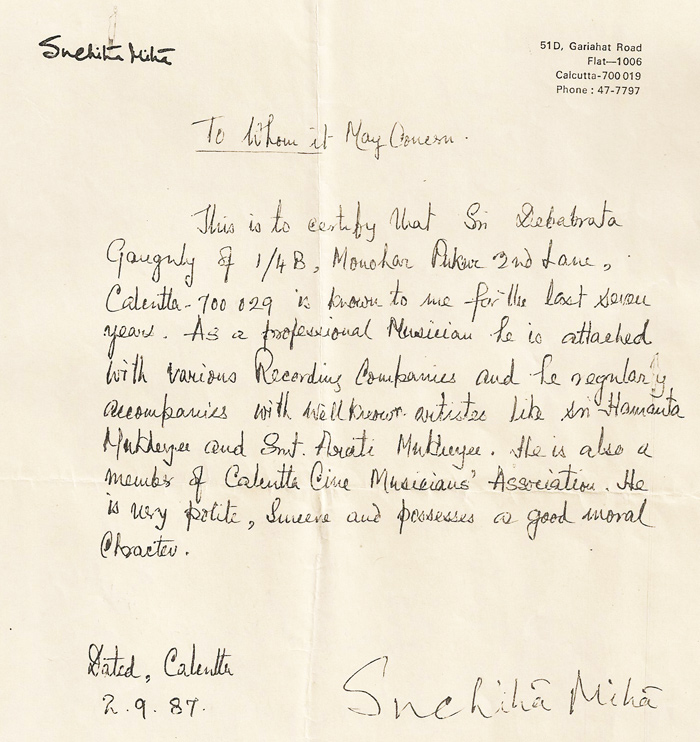 Suchitra Mitra
51D, Gariahat Road
Flat—1006
Calcutta-700 019
Phone : 47-7797
To Whom it May Concern.
This is to certify that Sri Debabrata
Ganguly of 1/4B, Monohar Pukur 2nd Lane,
Calcutta-700 029 is known to me for the last seven
years. As a professional Musician he is attached
with various Recording Companies and he regularly
accompanies with wellknown artistes like Sri Hamanta
Mukherjee and Smt. Arati Mukherjee. He is also a
member of Calcutta Cine Musicians' Association. He
is very polite, Sincere and possesses a good moral
Character.
Dated, Calcutta
2.9.87.
Suchitra Mitra